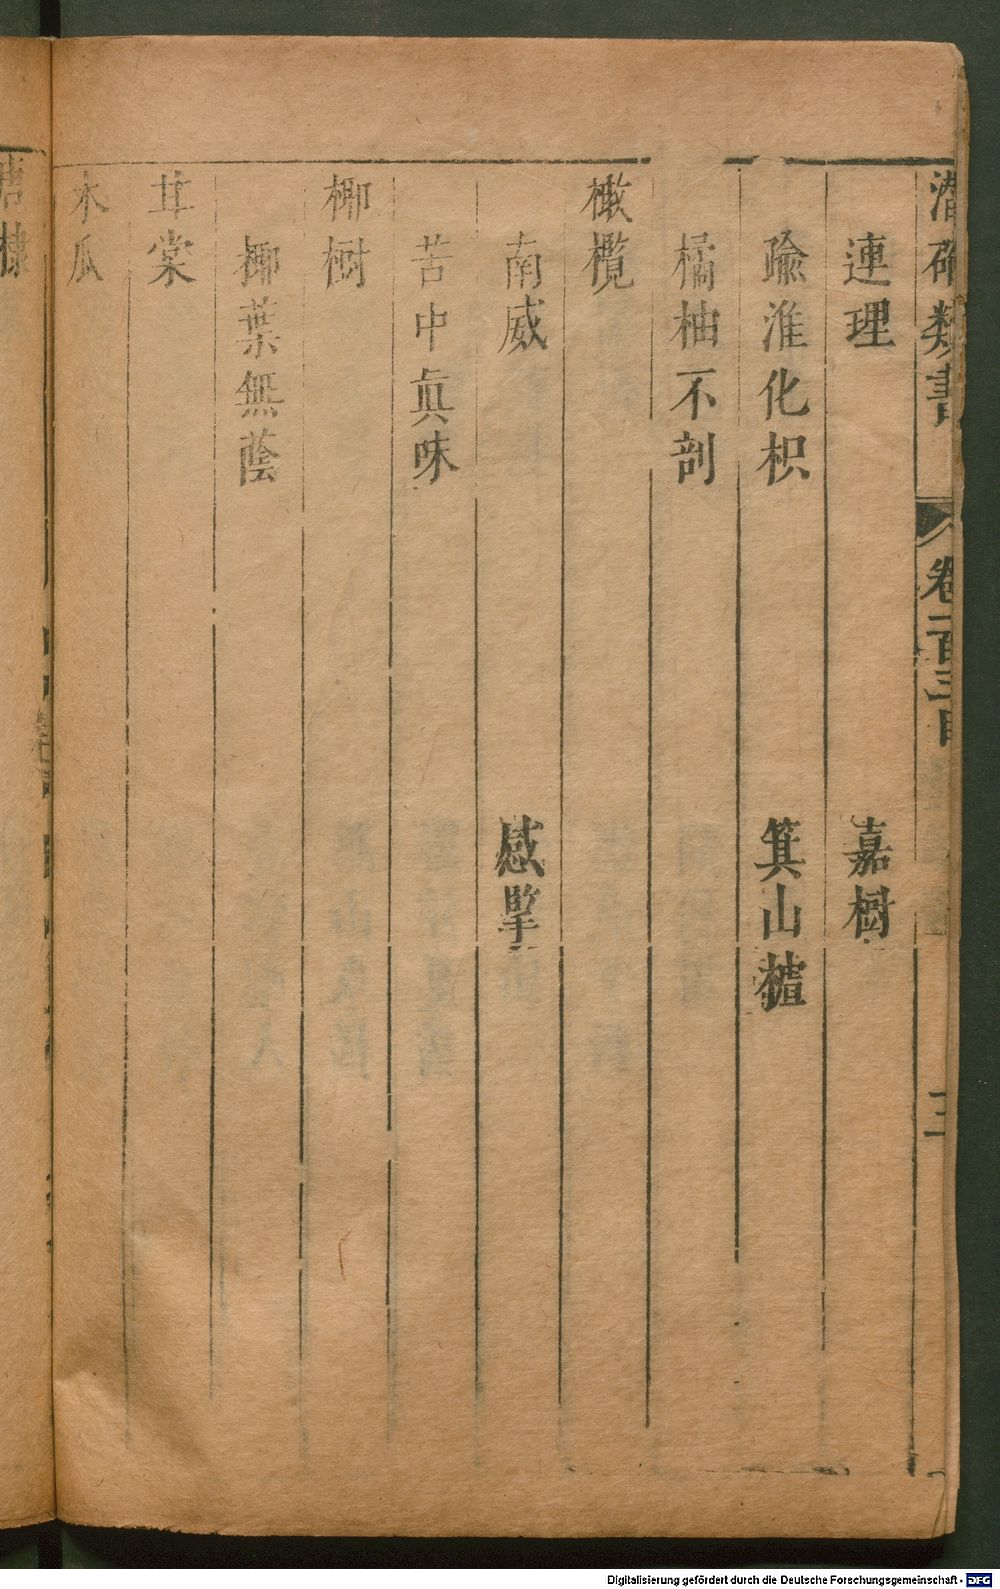 潛確類書 卷一百三目 三
連理 嘉樹
踰淮化枳 箕山樝
橘柚不剖
橄欖
南威 感擥
苦中眞味
椰樹
椰葉無蔭
甘棠
木瓜
唐棣
Digitalisierung gefördert durch die Deutsche Forschungsgemeinschaft - DFG